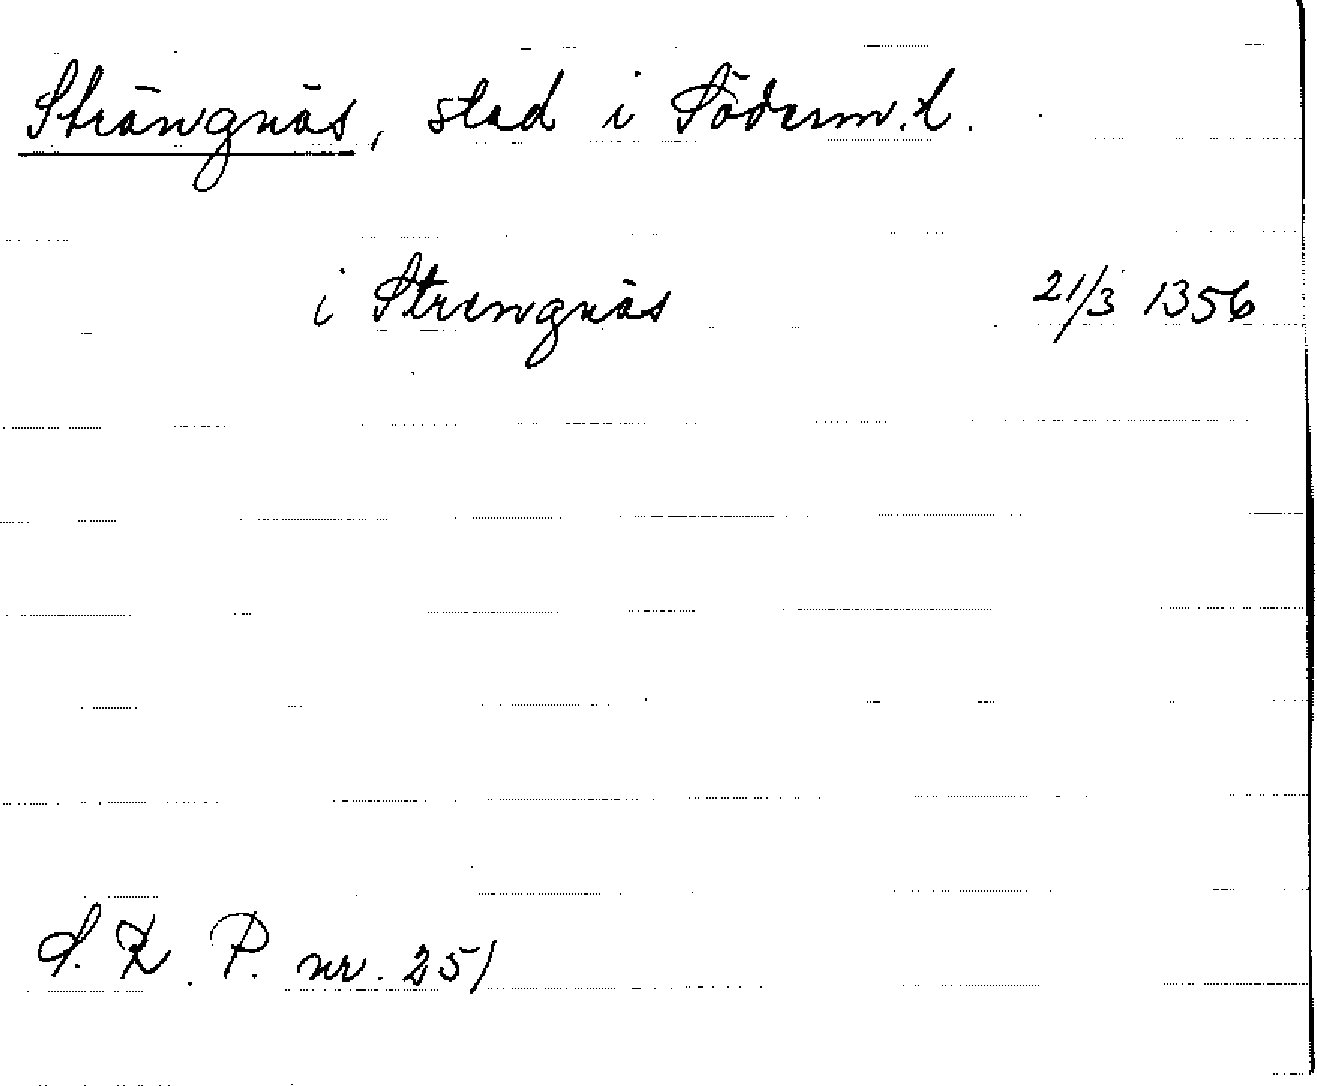 Strängnäs, stad i Söderm.l.
i Strengnäs 21/3 1356
S. R. P. nr. 251